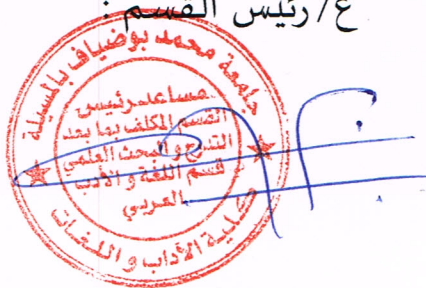 ع/رئيس القسم :
جامعة محمد بوضياف بالمسيلة
مساعد رئيس
القسم المكلف بما بعد
التدرج و البحث العلمي
قسم اللغة و الأدب
العربي
كلية الآداب و اللغات